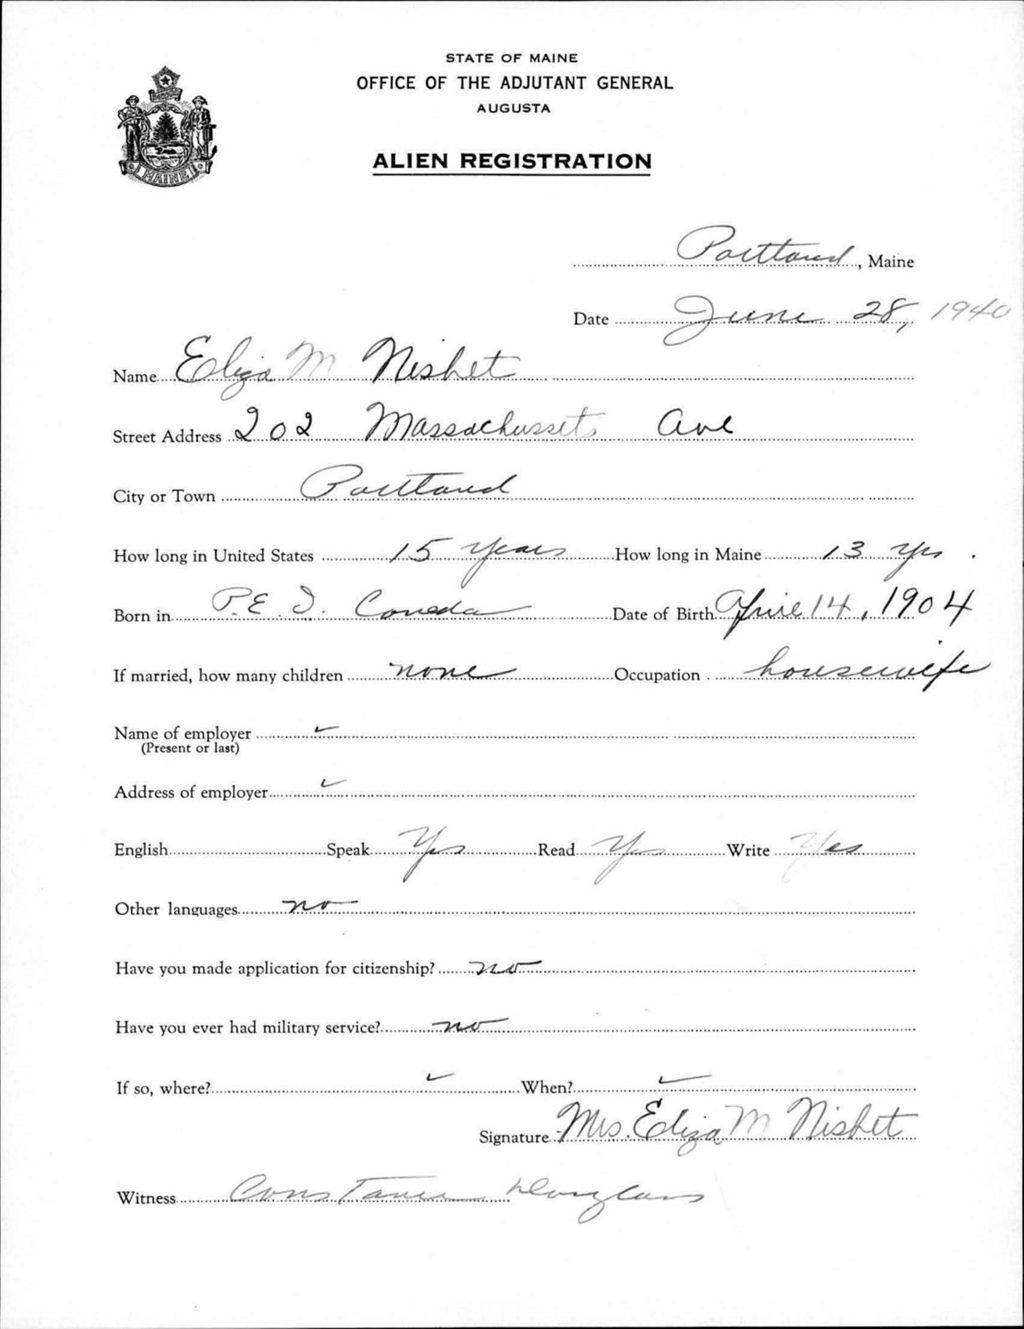 STATE OF MAINE
OFFICE OF THE ADJUTANT GENERAL
AUGUSTA
ALIEN REGISTRATION
MAINE
Portland, Maine
Date June 28, 1940
Name Eliza M Nisbet
Street Address 202 Massachussets Ave
City or Town Portland
How long in United States 15 years How long in Maine 13 yrs.
Born in P.E.I. Canada Date of Birth April 14, 1904
If married, how many children none Occupation housewife
Name of employer
(Present or last)
Address of employer
English Speak Yes Read Yes Write Yes
Other languages no
Have you made application for citizenship? no
Have you ever had military service? no
If so, where? When?
Signature Mrs. Eliza M Nisbet
Witness Constance Douglass